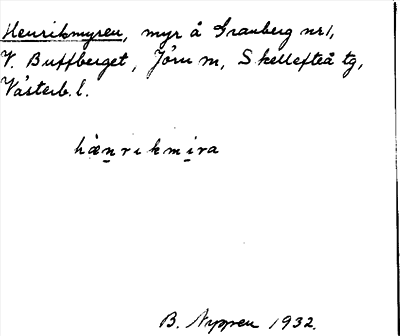 Henrikmyren, myr å Granberg nr 1,
V. Buffberget, Jörn sn, Skellefteå tg,
Västerb. l.
hæ̀n̥rikmi̱ra
B. Nygren 1932.